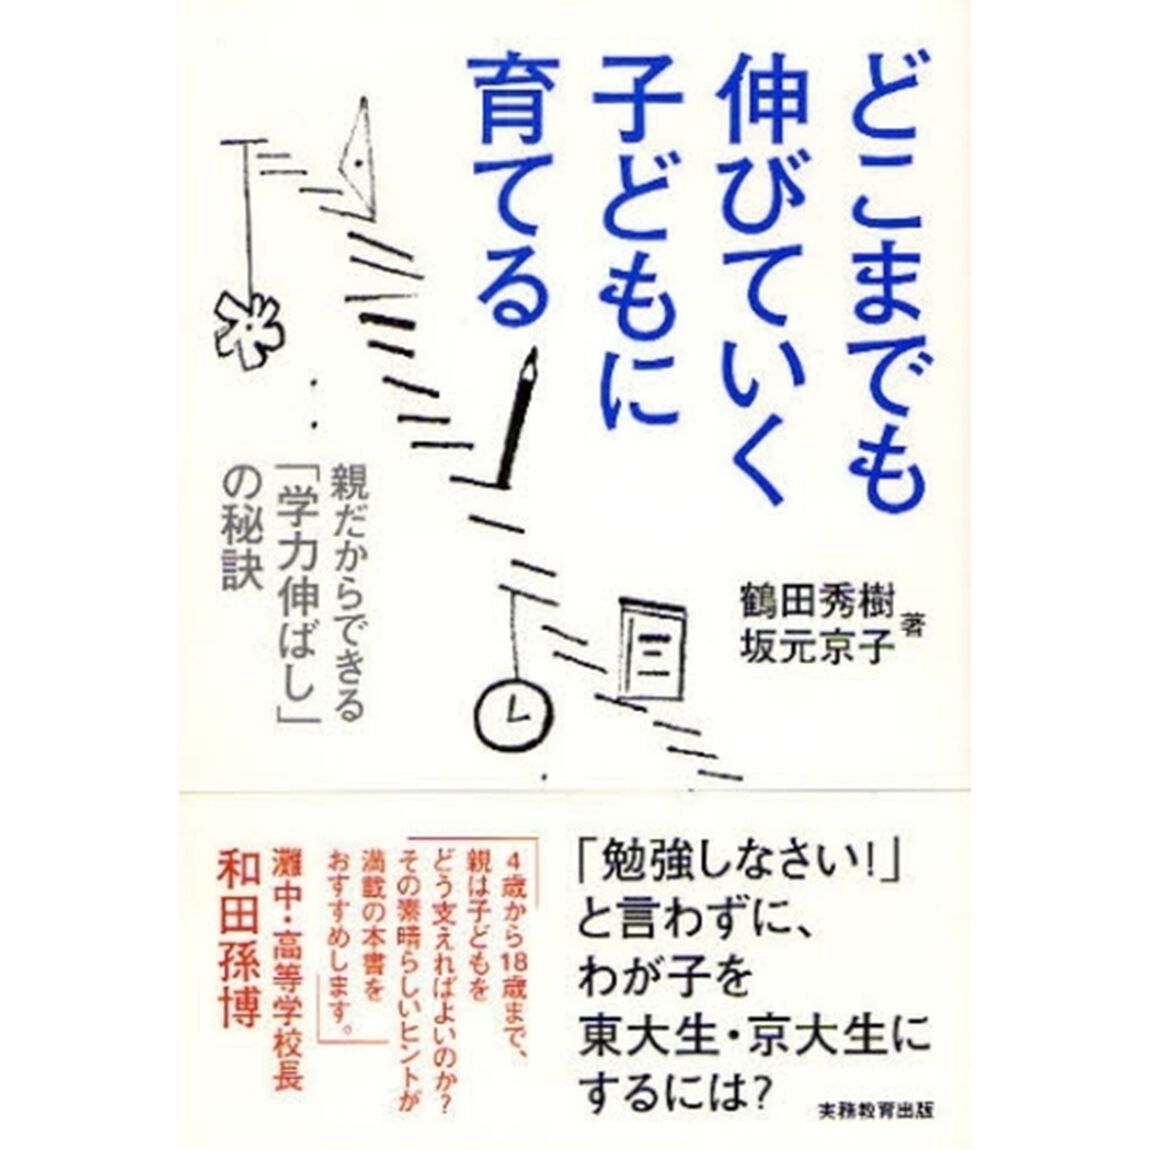 どこまでも
伸びていく
子どもに
育てる
親だからできる
「学力伸ばし」
の秘訣
鶴田秀樹
坂元京子
著
「勉強しなさい!」
と言わずに、
わが子を
東大生・京大生に
するには?
4歳から18歳まで、
親は子どもを
どう支えればよいのか?
その素晴らしいヒントが
満載の本書を
おすすめします。
灘中・高等学校長
和田孫博
実務教育出版